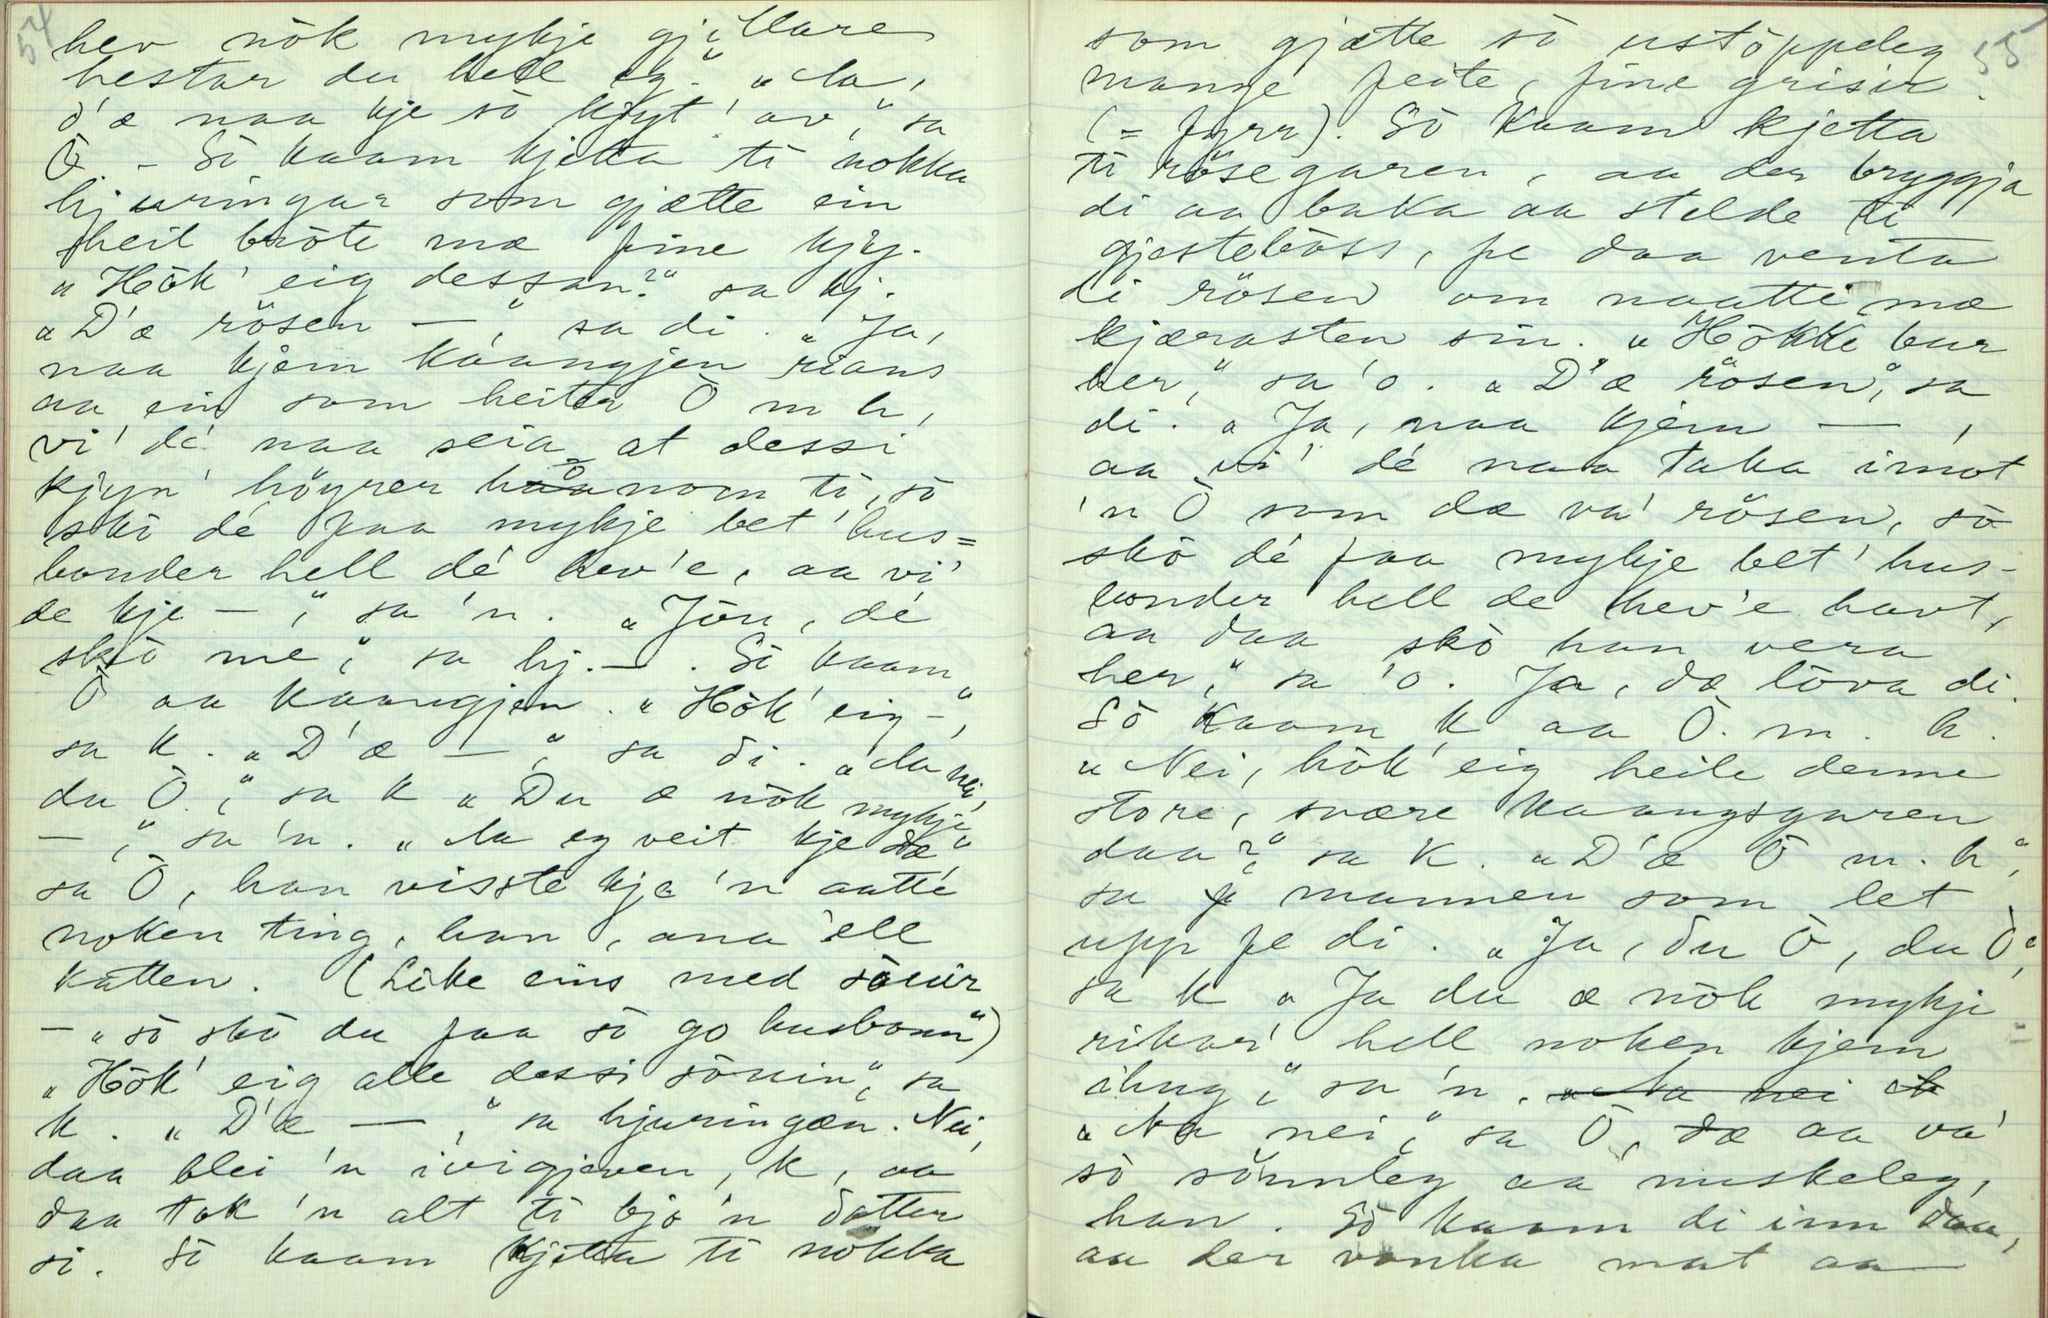 54
hev nök mykje gjillare
hestar du hell eg." "Aa,
d'æ naa kje sö kjyt' av," sa
Ö. - Sö kaam kjetta ti nokka
hjuringar som gjætte ein
heil bröte mæ fine kjy.
"Hök' eig dessan?" sa kj.
"D'æ rösen —," sa di. "Ja,
naa kjem kaangjen rians
aa ein som heiter Ö m h,
vi' dé naa seia at dessi
kjyn' höyrer hönom ti, sö
skö dé faa mykje bet' hus=
bonder hell dé hev'e, aa vi'
de kje —," sa 'n. "Jöu, dé
skö me," sa hj. —. Sö kaam
Ö aa kaangjen. "Hök' eig —,"
sa k. "D'æ —," sa di. "Aa nei,
du Ö," sa k "Du æ nök mykje
—," sa 'n. "Aa eg veit kje dæ"
sa Ö, han visste kje 'n aatte
noken ting, han, ana 'ell
katten. (Like eins med söuir
— "sö skö du faa sö go husbonn")
"Hök' eig alle dessi söuin," sa
k. "D'æ —," sa hjuringæn. Nei,
daa blei 'n ivigjeven, k, aa
daa tok 'n alt ti bjo 'n dotter
si. Sö kaam kjetta ti nokka
55
som gjætte sö ustöppeleg
mange feite, fine grisir.
(= fyrr). Sö kaam kjetta
ti rösegaren, aa der bryggja
di aa baka aa stelde ti
gjesteböss, fe daa venta
di rösen om naatti mæ
kjærasten sin. "Hökke bur
her," sa 'o. "D'æ rösen," sa
di. "Ja, naa kjem —,
aa vi' dé naa taka imot
'n Ö som dæ va' rösen, sö
skö dé faa mykje bet' hus-
bonder hell de hev'e havt,
aa daa skö han vera
her," sa 'o. Ja, dæ löva di.
Sö kaam k aa Ö. m. h.
"Nei, hök' eig heile denne
store, svære kaangsgaren
daa?," sa k. "D'æ Ö m. h",
sa mannen som let
upp fe di. "Ja, du Ö, du Ö",
sa k "Ja du æ nök mykje
rikar' hell noken kjem
ihug," sa 'n. "Aa nei
"Aa nei," sa Ö, dæ aa va'
sö sömnleg aa nuskeleg,
han. Sö kaam di inn daa,
aa der vanka mat aa